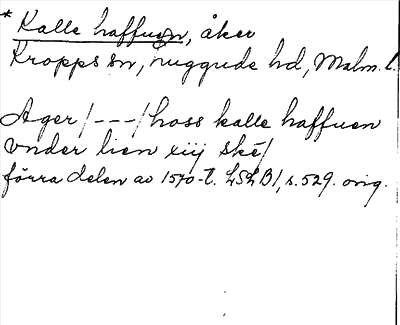 * Kalle haffuen, åker
Kropps sn, Luggude hd, Malm. l.
Ager/---/hoss kalle haffuen
vnder lien xiij ské/
förra delen av 1570-t. LSLB1, s. 529. orig.